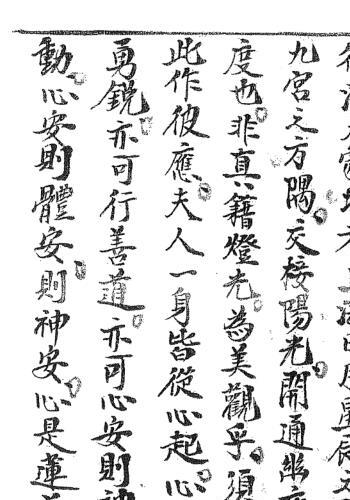 九宮之方隅交接陽光開通幽
度也非真以籍燈光為美觀乎須
此作彼應夫人一身皆從心起心
勇銳亦可行善道亦可心安則神
動心安則體安則神安心是蓮